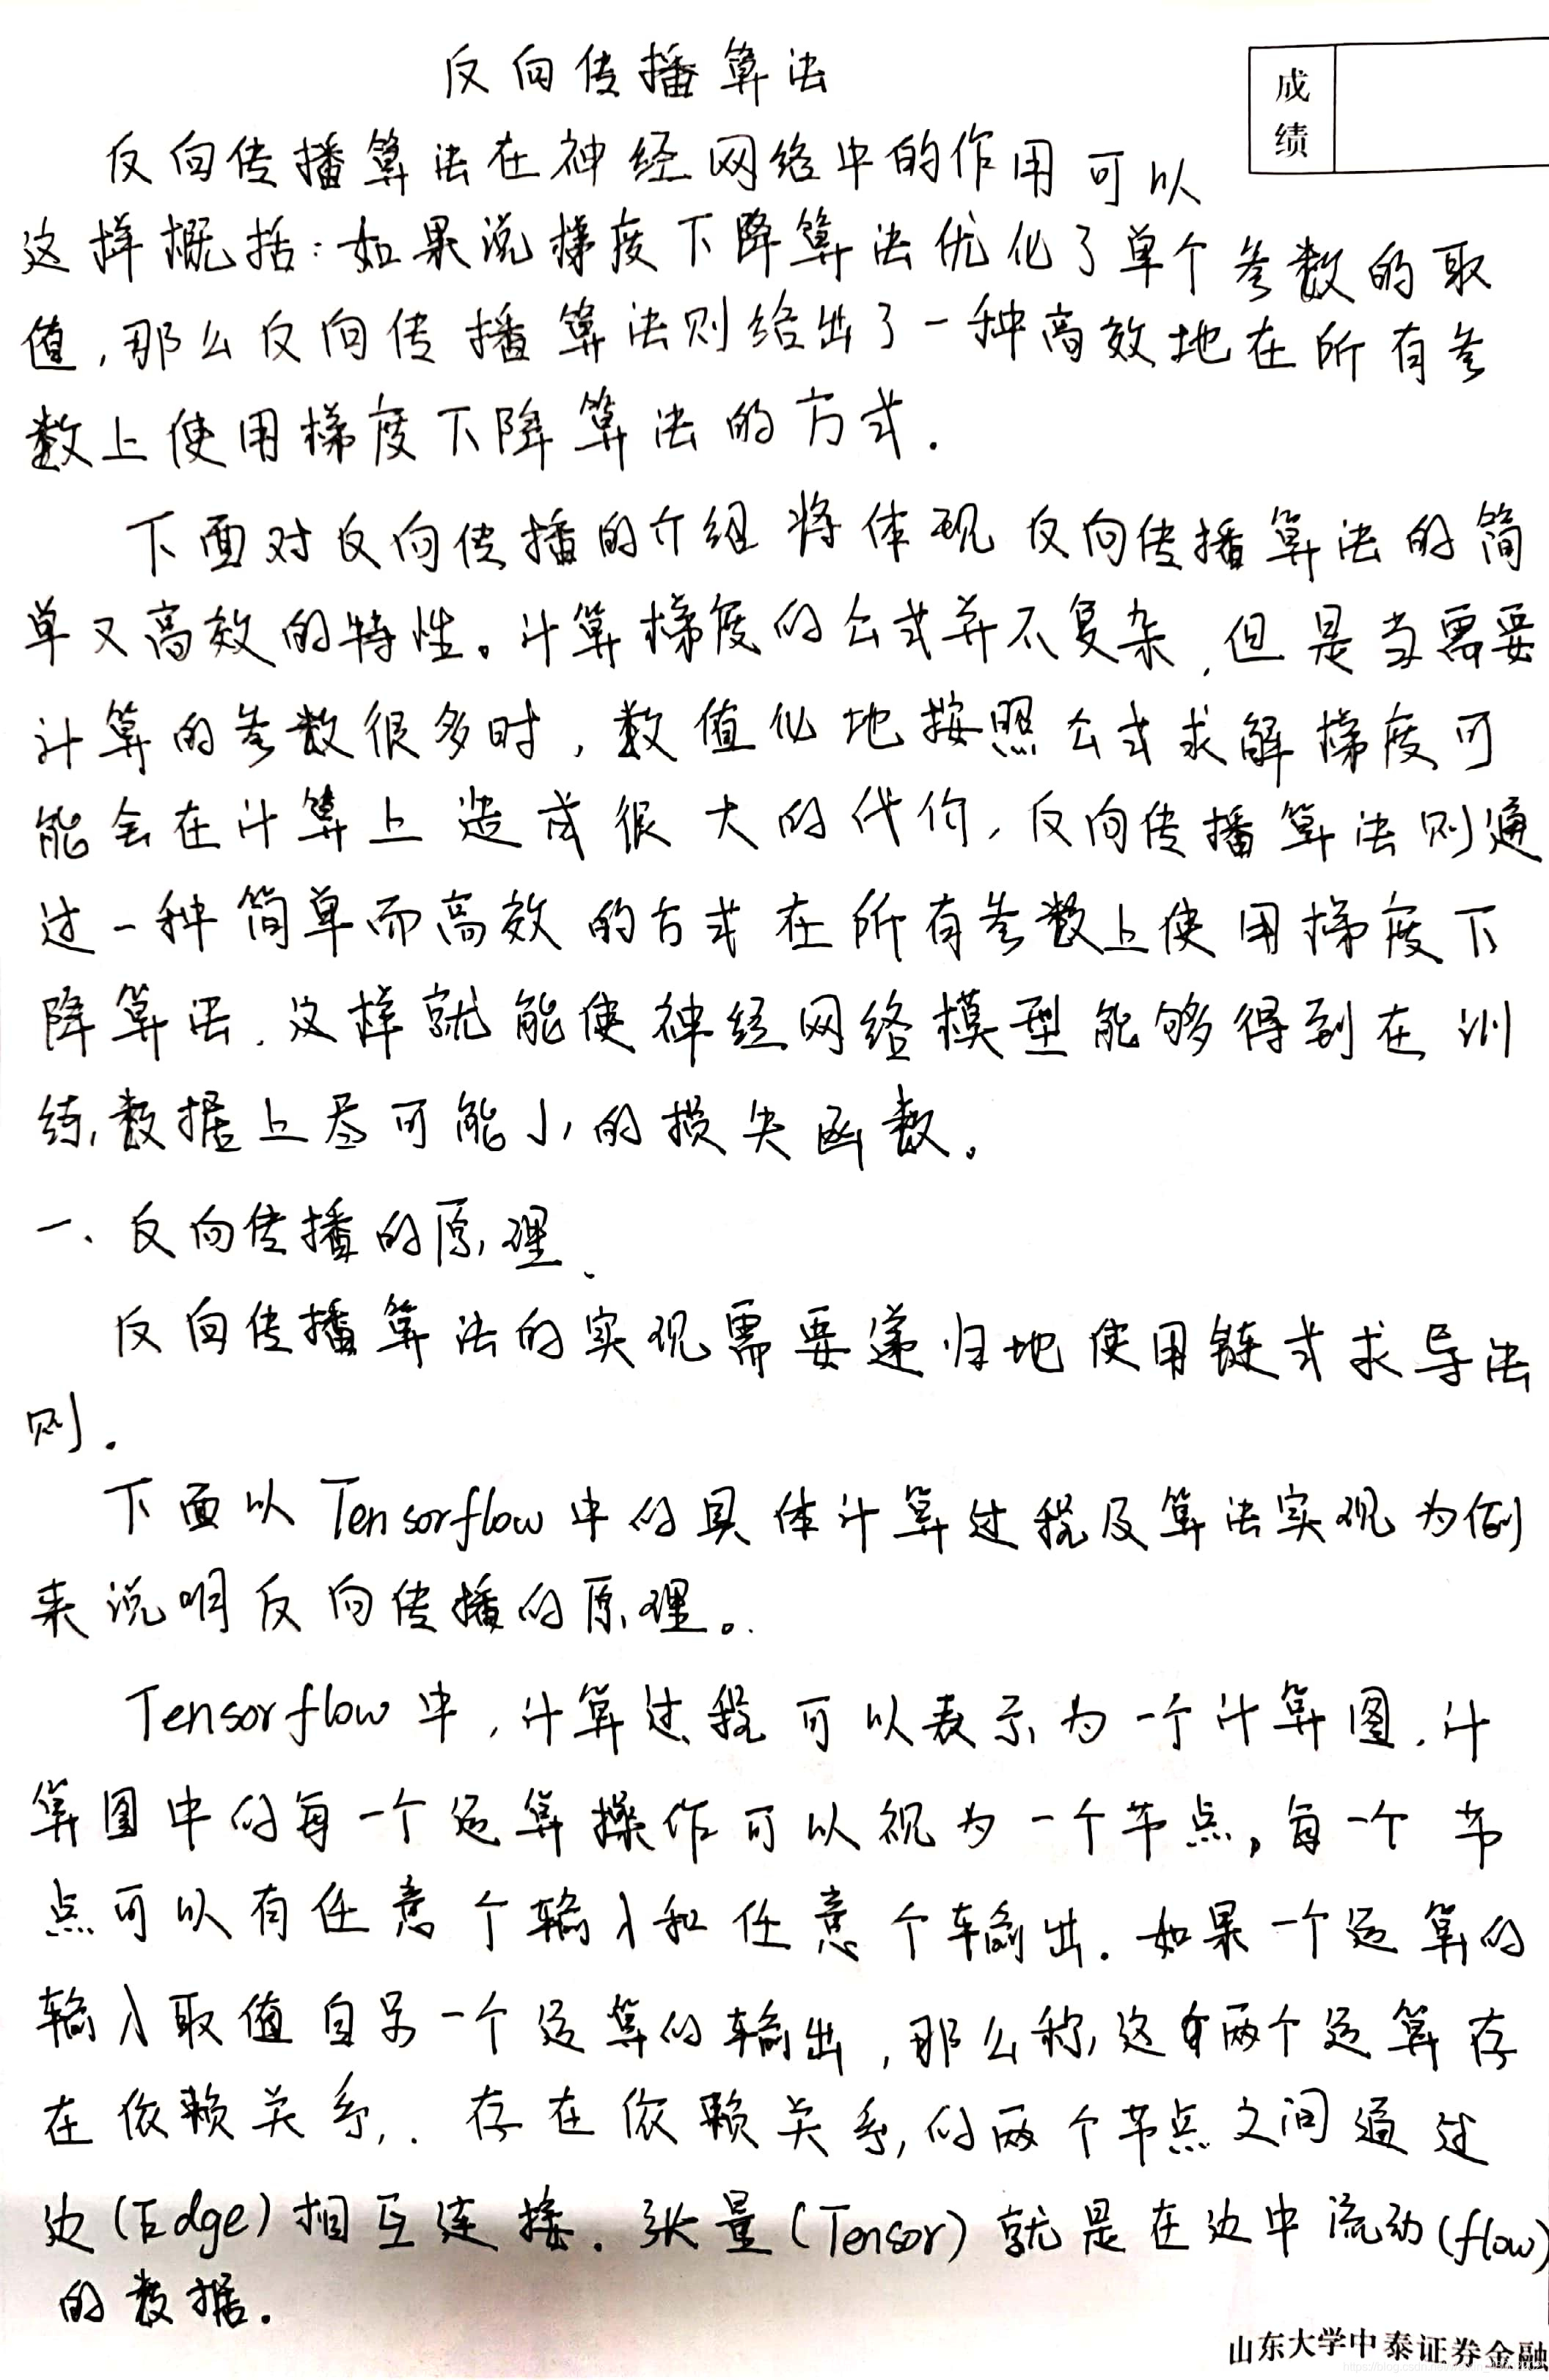 反向传播算法
成绩
反向传播算法在神经网络中的作用可以
这样概括:如果说梯度下降算法优化了单个参数的取
值,那么反向传播算法则给出了一种高效地在所有参
数上使用梯度下降算法的方式.
下面对反向传播的介绍将体现反向传播算法的简
单又高效的特性。计算梯度的公式并不复杂,但是当需要
计算的参数很多时,数值化地按照公式求解梯度可
能会在计算上造成很大的代价,反向传播算法则通
过一种简单而高效的方式在所有参数上使用梯度下
降算法.这样就能使神经网络模型能够得到在训
练数据上尽可能小的损失函数。
一、反向传播的原理
反向传播算法的实现需要递归地使用链式求导法
则.
下面以Tensorflow中的具体计算过程及算法实现为例
来说明反向传播的原理。
Tensorflow中,计算过程可以表示为一个计算图.计
算图中的每一个运算操作可以视为一个节点,每一个节
点可以有任意个输入和任意个输出.如果一个运算的
输入取值自另一个运算的输出,那么称这两个运算存
在依赖关系.存在依赖关系的两个节点之间通过
边(Edge)相互连接.张量(Tensor)就是在边中流动(flow)
的数据.
山东大学中泰证券金融